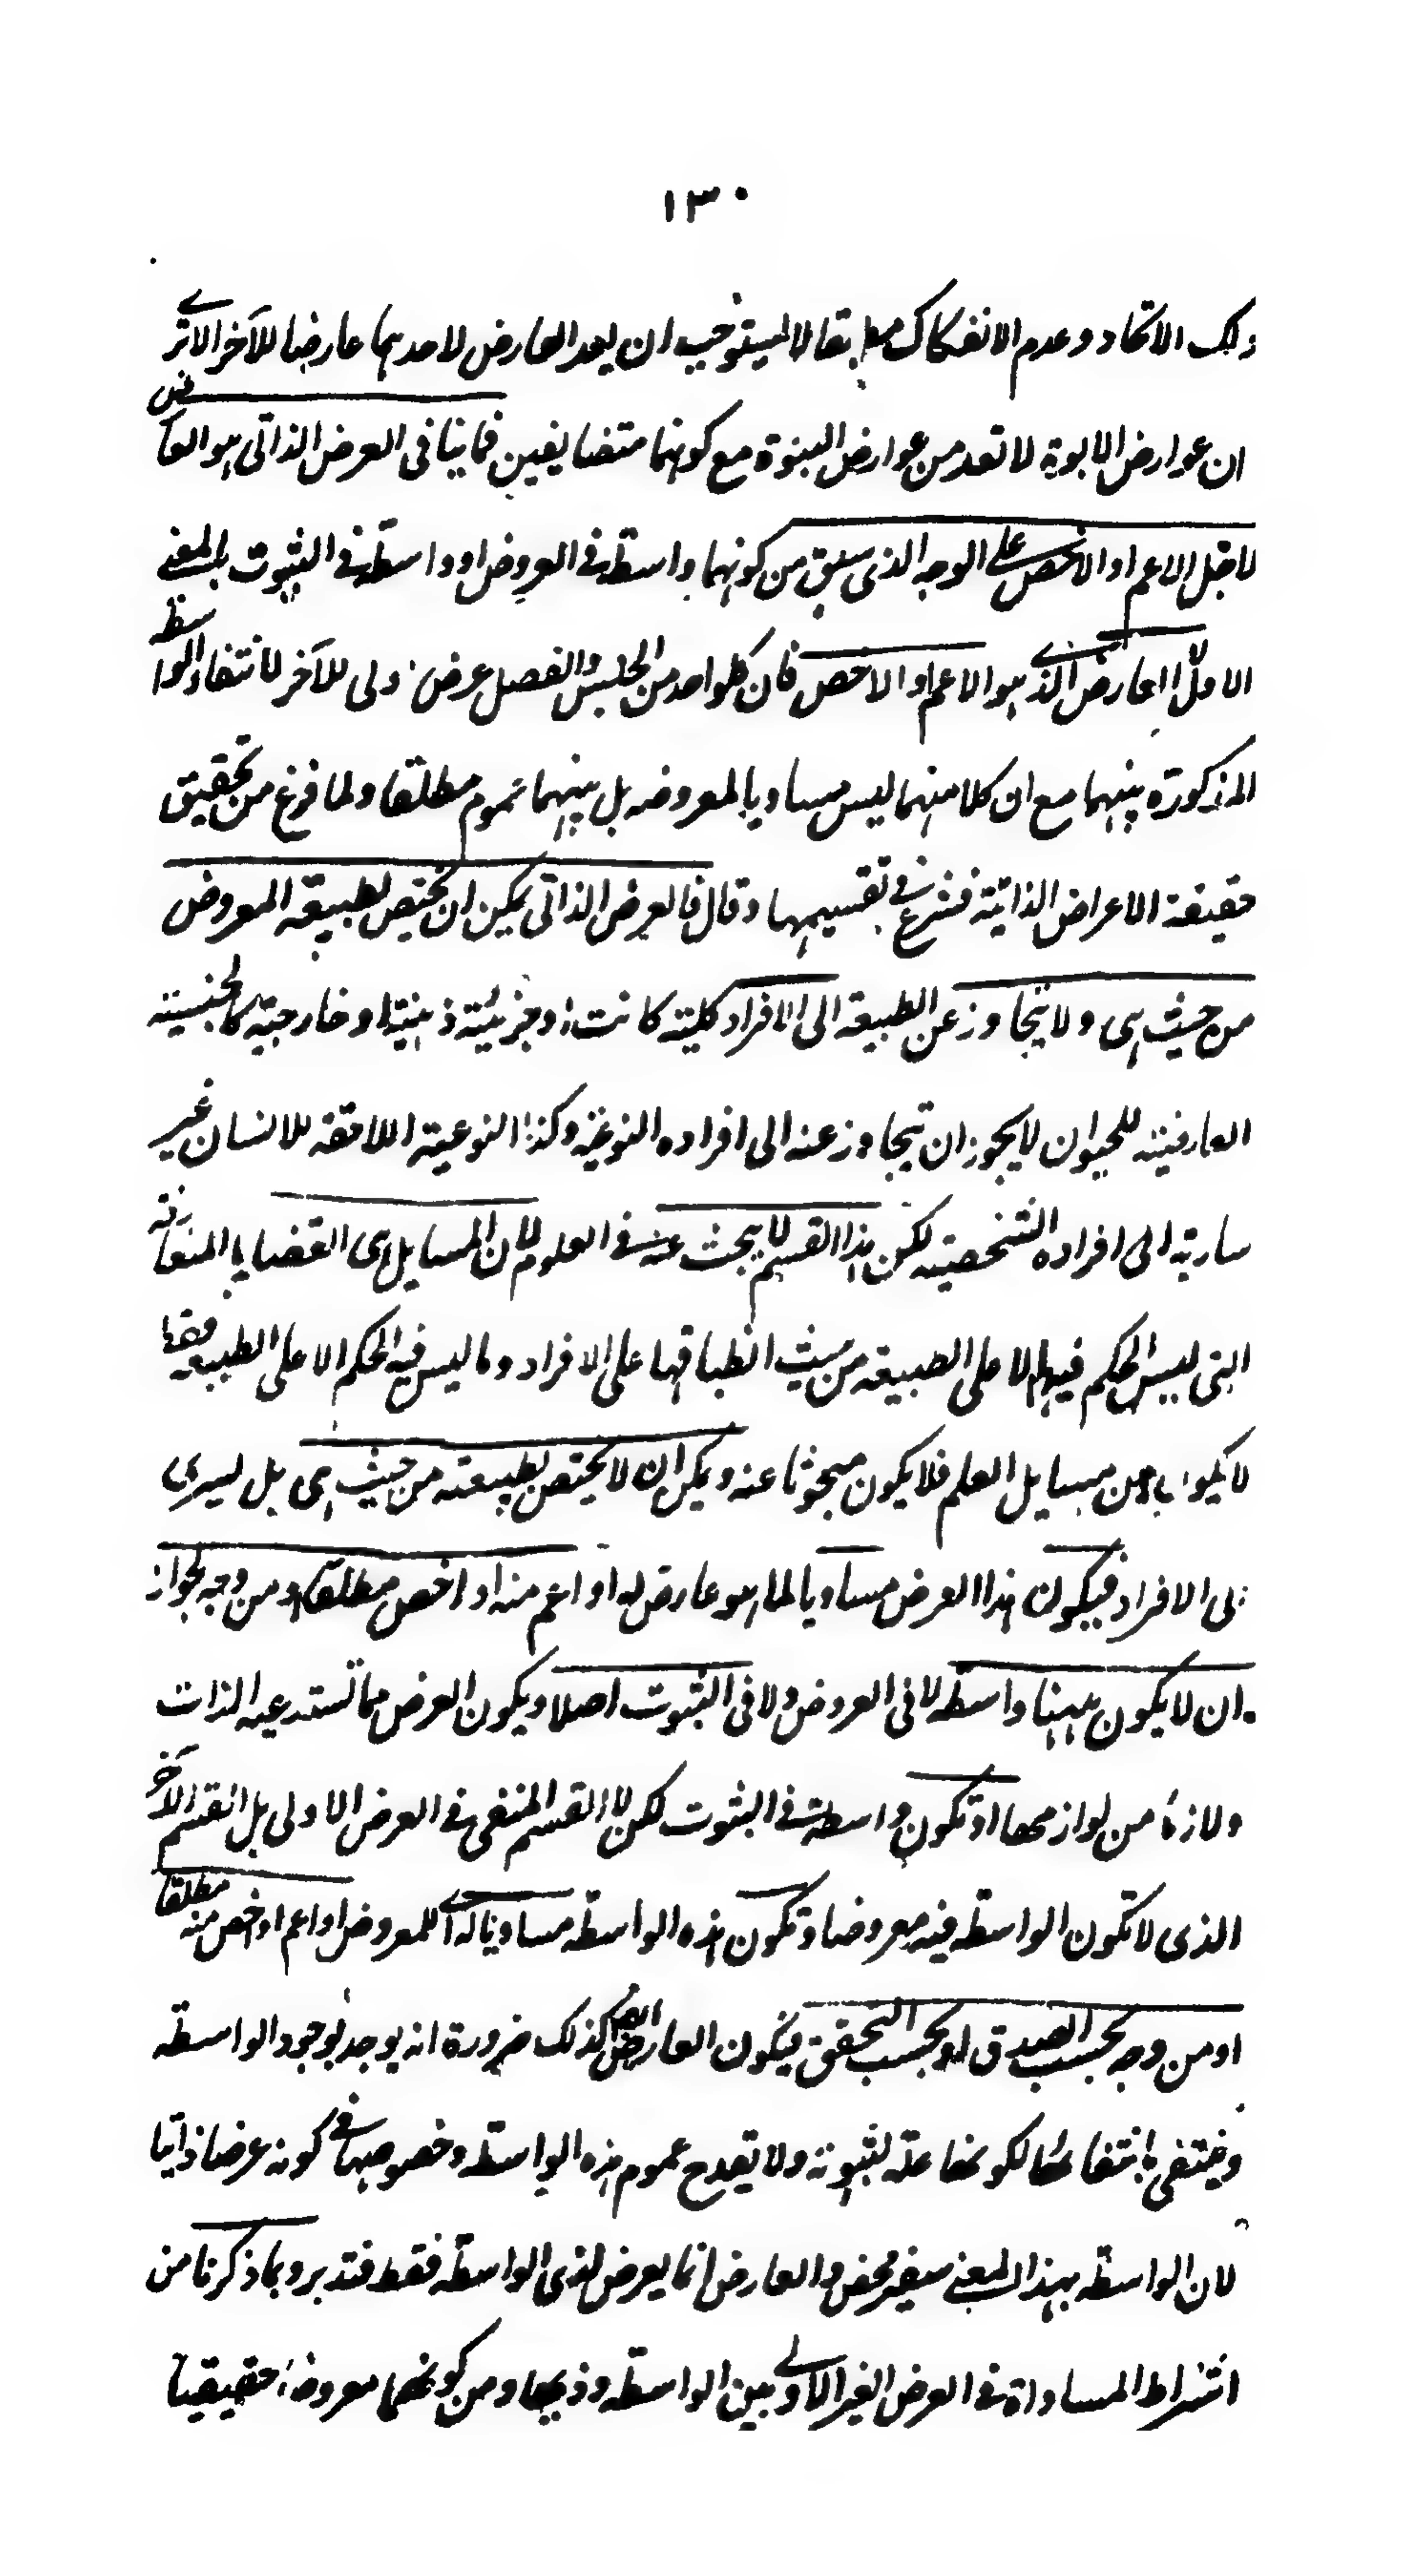 ١٣٠
ذلك الاتحاد وعدم الانفكاك مطابقا لا يستوجب ان يعد العارض لاحدهما عارضا للآخر الا ترى
ان عوارض الابوة لا تعد من عوارض البنوة مع كونهما متضايفين فما ينافى العرض الذاتى هو العارض
لاجل الاعم او الاخص على الوجه الذى سبق من كونهما واسطة فى العروض او واسطة فى الثبوت بالمعنى
الاول لا العارض الذى هو الاعم او الاخص فان كلواحد من الجنس والفصل عرض اولى للآخر لانتفاء الواسطة
المذكورة بينهما مع ان كلا منهما ليس مساويا لمعروضه بل بينهما عموم مطلقا ولما فرغ من تحقيق
حقيقة الاعراض الذاتية فشرع فى تقسيمها وقال فالعرض الذاتى يمكن ان يختص بطبيعة المعروض
من حيث هى ولا يتجاوز عن الطبيعة الى الافراد كلية كانت او جزئية ذهنية او خارجية كالجنسية
العارضة للحيوان لا يجوز ان يتجاوز عنه الى افراده النوعية وكذا النوعية اللاحقة للانسان غير
سارية الى افراده الشخصية لكن هذا القسم لا يبحث عنه فى العلوم لان المسايل هى القضايا المتعارفة
التى ليس الحكم فيها الا على الطبيعة من حيث انطباقها على الافراد وما ليس فيه الحكم الا على الطبيعة فقط
لا يكون من مسايل العلم فلا يكون مبحوثا عنه ويمكن ان لا يختص بطبيعته من حيث هى بل يسرى
الى الافراد فيكون هذا العرض مساويا لما هو عارض له او اعم منه او اخص مطلقا او من وجه لجواز
ان لا يكون ههنا واسطة لا فى العروض ولا فى الثبوت اصلا ويكون العرض مما تستدعيه الذات
ولازما من لوازمها او تكون واسطة فى الثبوت لكن لا القسم المنفى فى العرض الاولى بل القسم الآخر
الذى لا تكون الواسطة فيه معروضا وتكون هذه الواسطة مساويا له اى للمعروض او اعم او اخص منه مطلقا
او من وجه بحسب الصدق او بحسب التحقق فيكون العارض ايضا كذلك ضرورة انه يوجد بوجود الواسطة
وينتفى بانتفائها لكونها علة لثبوته ولا يقدح عموم هذه الواسطة وخصوصها فى كونه عرضا ذاتيا
لان الواسطة بهذا المعنى سفير محض والعارض انما يعرض لذى الواسطة فقط فتدبر وبما ذكرنا من
اشتراط المساواة فى العرض الغير الاولى بين الواسطة وذيها ومن كونهما معروضا حقيقيا